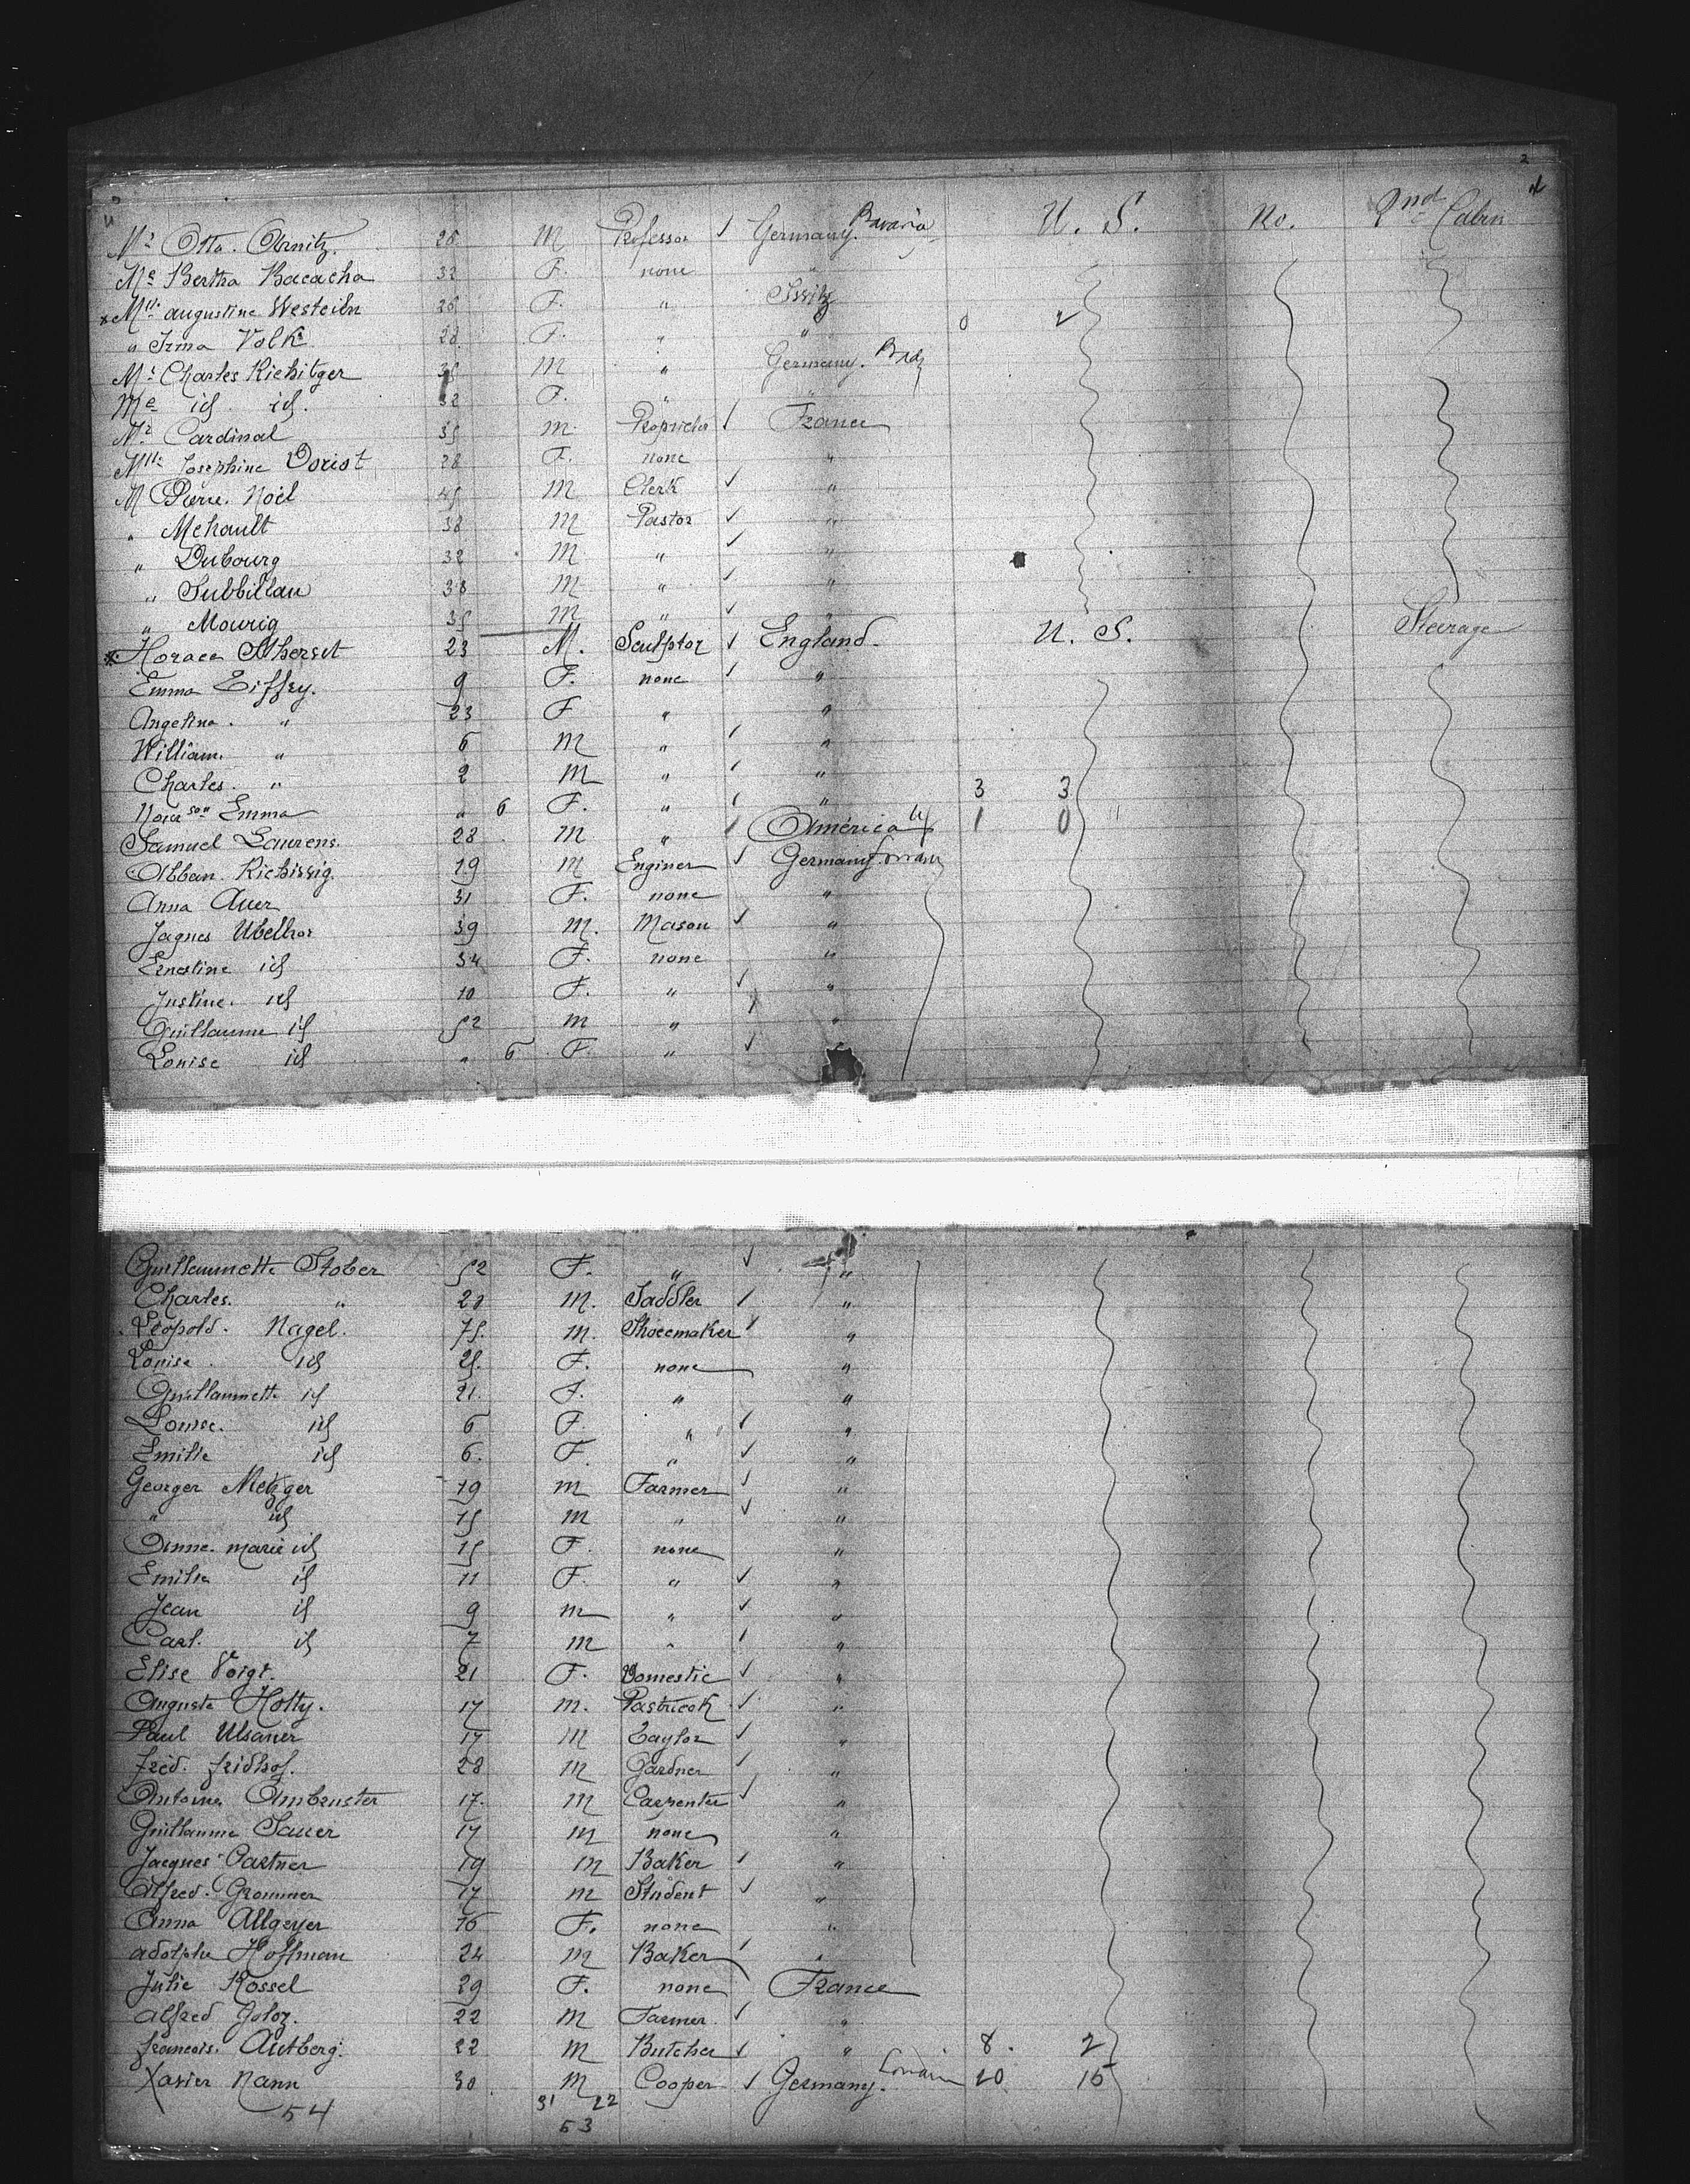 Mr Otto. Arnitz. 28 M Professor Germany. Bavaria U. S. No. 2nd Cabin
Me Bertha Bacacha 32 F. none "
Mlle Augustine Westeiln 26 F. "
" Irma Volk 28 F. " "
Mr Charles Richitger M " Germany. Bad
Me id. id. 32 F. " "
Mr Cardinal 35 M. Proprietor France
Mlle Josephine Doriot 28 F. none "
M Pierre. Noël 45 M Clerk "
" Mehault 38 M Pastor "
" Dubourg 32 M " "
" Subbillau 38 M " "
" Mourig 35 M " "
Horace Stherset 23 M. Sculptor England. U. S. Steerage
Emma Tiffey. 9 F. none "
Angelina. " 23 F " "
William. " 6 M " "
Charles. " 2 M " " 3 3
Emma " 6 F. " " 1 0
Samuel Laurens. 28 M " América
Abban. Richissig. 19 M Enginer Germany. Lorrain
Anna Auer 31 F. none "
Jagnes Ubelhor 39 M. Mason "
Ernestine id 34 F. none "
Justine. id 10 F. " "
Guillaume id 52 M " "
Louise id " 6 F. "
Guillaumette Stober 52 F. " "
Charles. " 28 M. Saddler "
Leopold. Nagel. 75. M. Shoecmaker "
Louise. id 25. F. none "
Guillaumette id 21. F. " "
Louise. id 6 F. " "
Emilie id 6. F. " "
Georger Metzger 19 M Farmer "
" id 15 M " "
Anne. marie id 15 F. none "
Emilie id 11 F. " "
Jean id 9 M " "
Carl. id 7 M " "
Elise Voigt. 21 F. Domestic "
Auguste Holty. 17 M. Pastricok "
Paul Ulsaner 17 M Taylor "
Fréd. Fridhof. 28 M Gardner "
Antoine Ambruster 17. M Carpenter "
Guillaume Sauer 17 M none "
Jacques Partner 19 M Baker "
Alfred. Grommer 17 M Student "
Anna Allgeyer 16 F. none "
Adolphe Hoffman 24 M Baker "
Julie Rossel 29 F. none France
Alfred Joloz. 22 M Farmer. "
François. Autberg. 22 M Butcher " 8. 2
Xavier Nann 30 M Cooper Germany. Lorrain 20 15
54 31 22
53